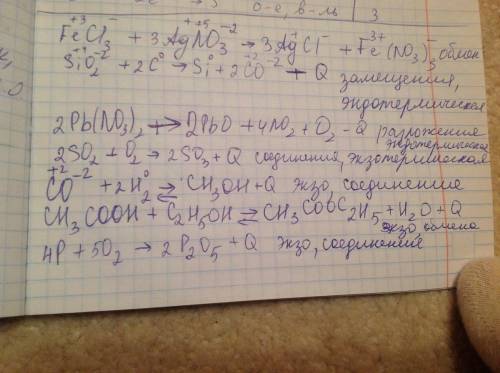 о-е, в-ль | 3
Fe⁺³Cl₃⁻ + 3Ag⁺N⁺⁵O₃⁻² → 3Ag⁺Cl⁻ + Fe³⁺(NO₃)₃⁻ обмен
SiO₂⁻² + 2C⁰ → Si⁰ + 2C⁺²O⁻² - Q замещения,
эндотермическая
2Pb(NO₃)₂ → 2PbO + 4NO₂ + O₂ - Q разложение
эндотермическая
2SO₂ + O₂ → 2SO₃ + Q соединения, экзотермическая
C⁺²O⁻² + 2H₂⁰ ⇌ CH₃OH + Q экзо, соединение
CH₃COOH + C₂H₅OH ⇌ CH₃COOC₂H₅ + H₂O + Q
экзо, обмена
4P + 5O₂ → 2P₂O₅ + Q экзо, соединения